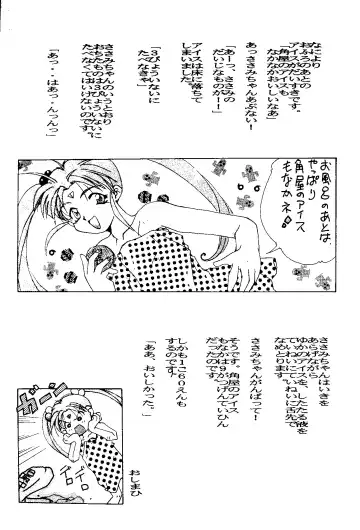 なにより
おふろのあとの
アイスがだいすきです。
「角屋のアイスも
なかなかおいしいなあ」
あっささみちゃんあぶない！
「あーっ、ささみの
だいじなのが！！」
アイスは床に落ちて
しまいました
「3びょういないに
たべなきゃ」
ささみちゃんのいうとおり
おちたものは3びょういないに
たべなくてはいけないのです。
「あっ・・はあっ・んっんっ」
お風呂のあとは
やっぱり
角屋のアイス
もなかネ
ささみちゃんはいきを
あらげながら
ゆかのアイスを、したたる液を
ていねいにていねいに舌先で
なめとります
ささみちゃんがんばって！
そうです。角屋のアイス
もなかは9がつげんていひん
だったのです
しかも1こ60えんも
するのです。
「ああ、おいしかった。」
おしまひ
ガガーン
ドロドロ